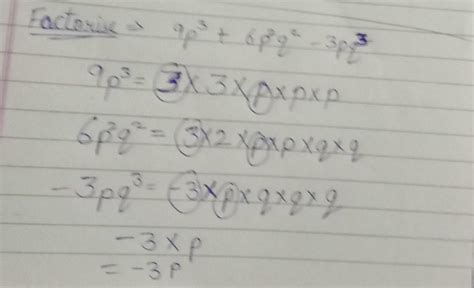 Factorise ⇒ 9p³ + 6p²q² - 3pq³
9p³ = 3 × 3 × p × p × p
6p²q² = 3 × 2 × p × p × q × q
-3pq³ = -3 × p × q × q × q
-3 × p
= -3p